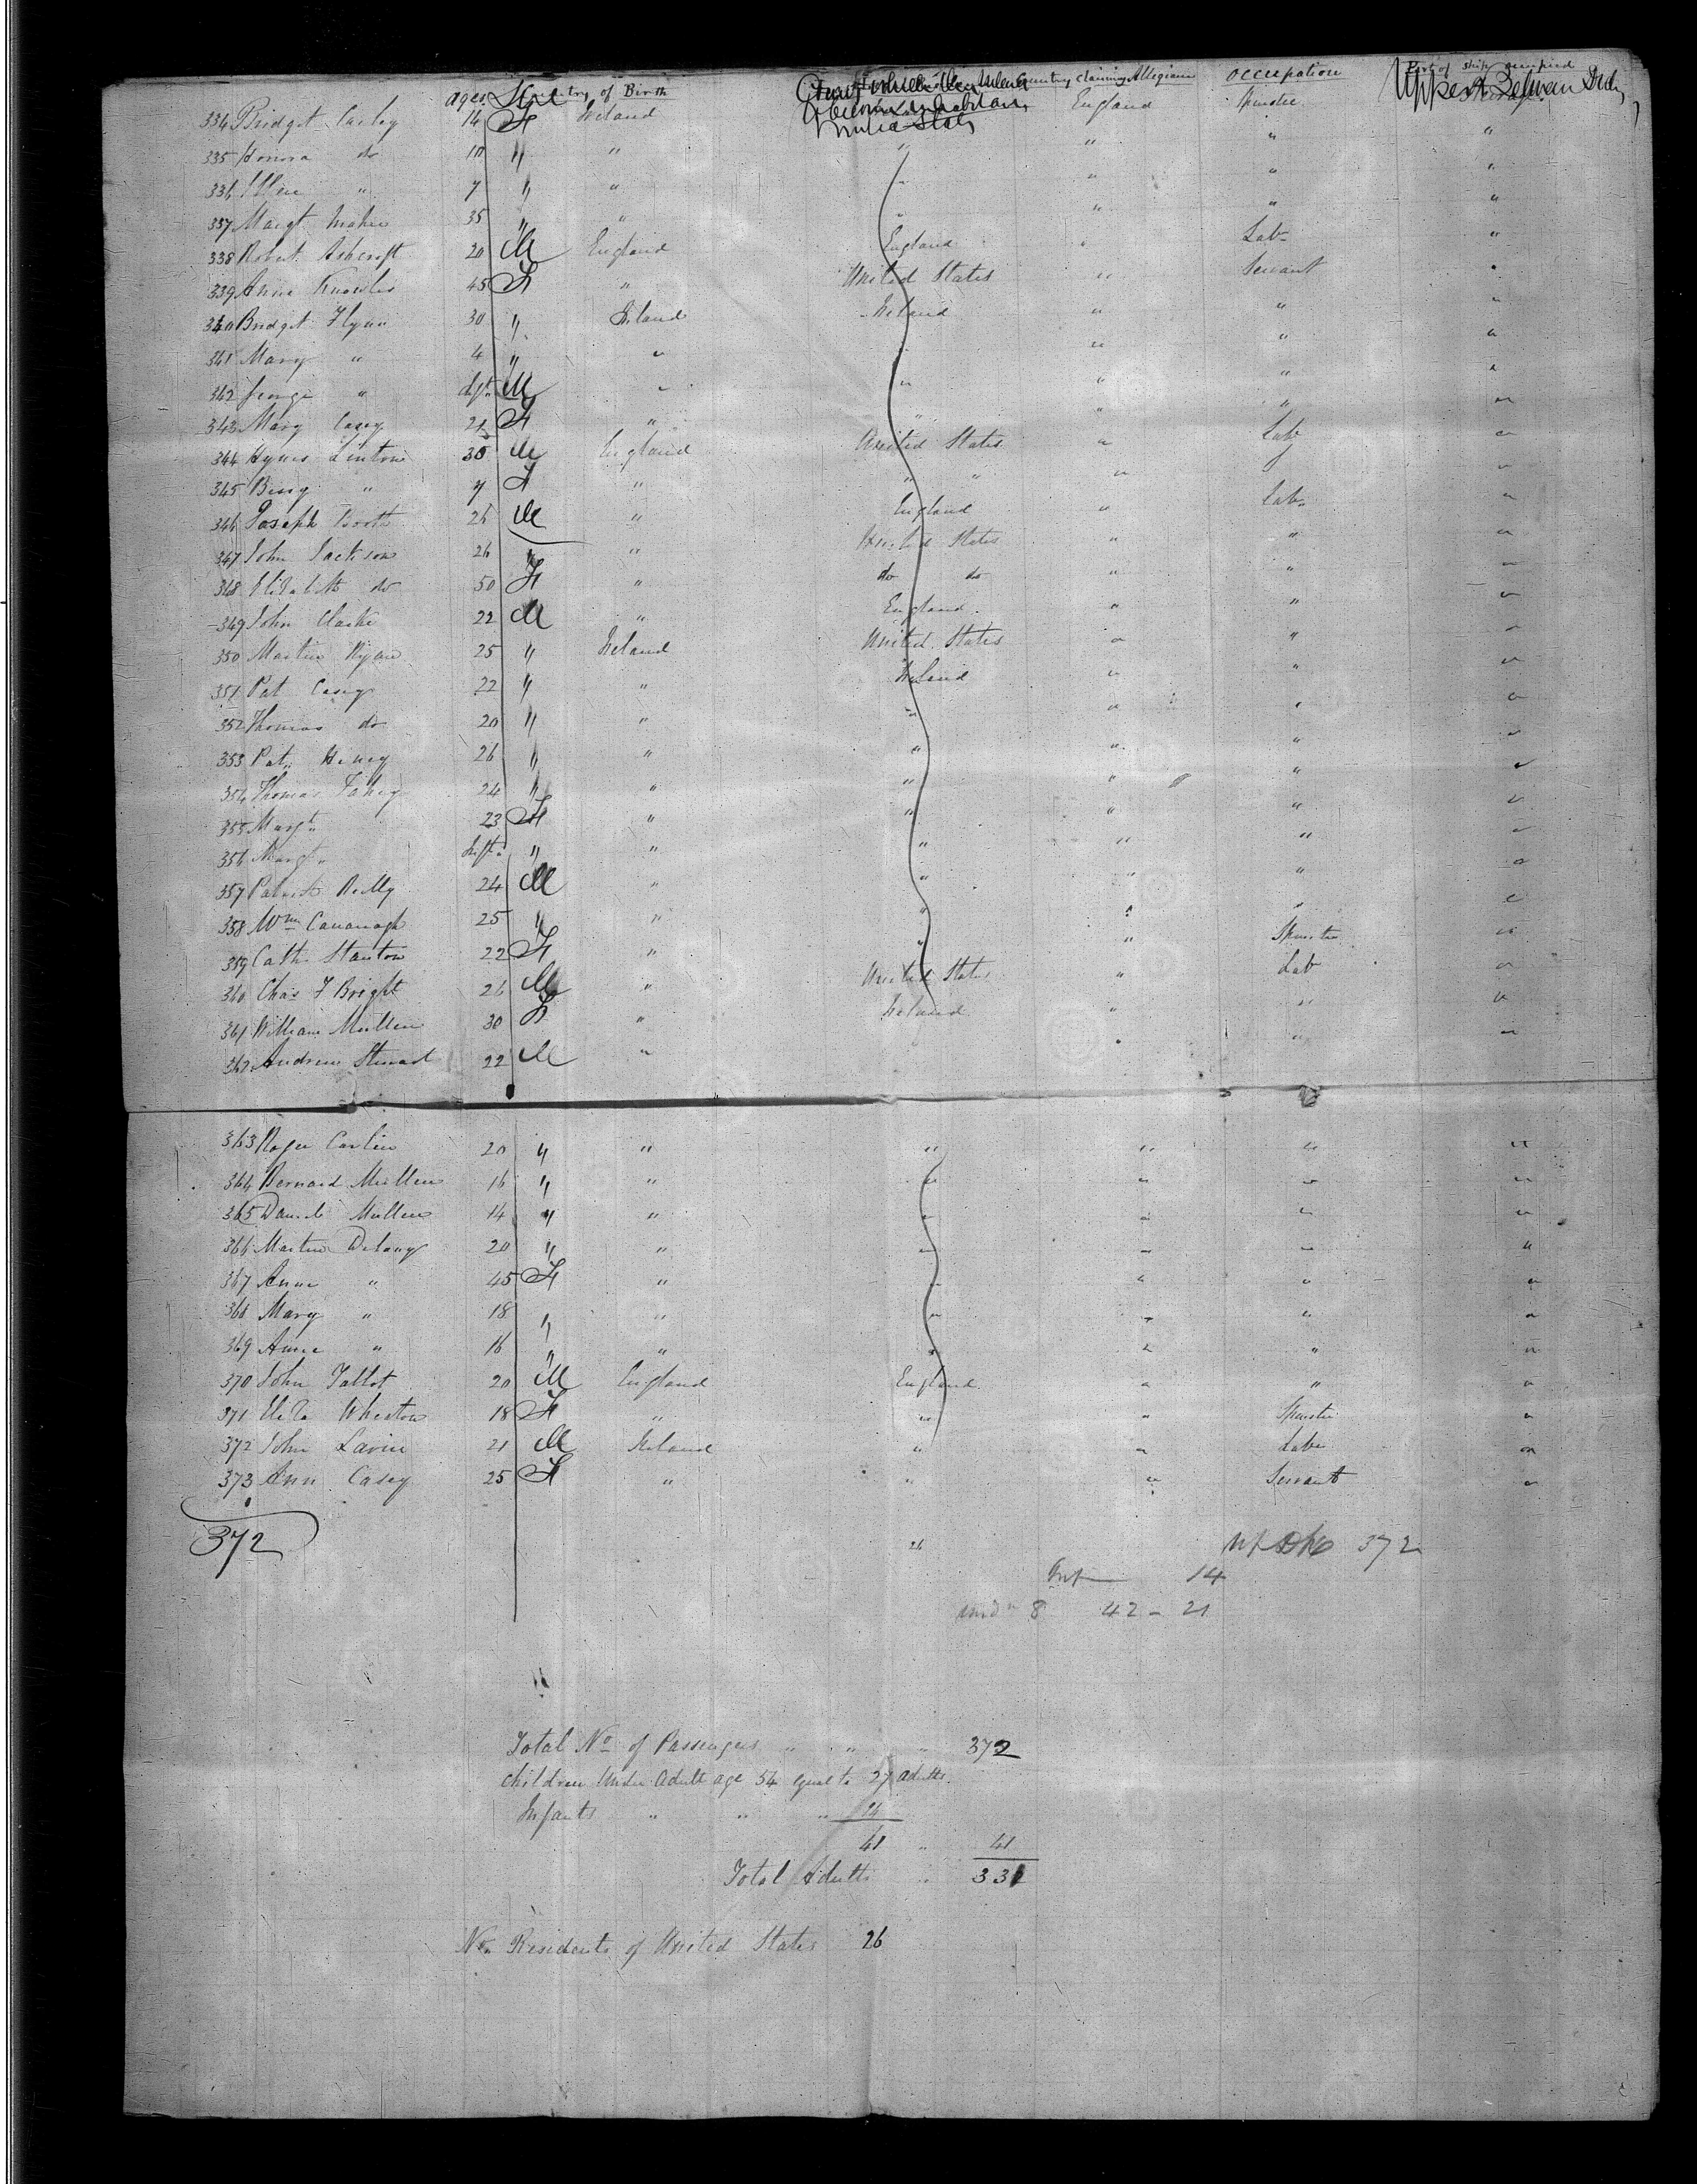 ages Sex Country of Birth Country claiming Allegiance Occupation Part of Ship occupied
Upper & Between Decks
334 Bridget 14 F Ireland England Spinster
335 Honora do 10 " " " " " "
336 Ellen " 7 " " " " " "
337 Margt Maher 35 " " " " " "
338 Robert Ashcroft 20 M England England " Lab "
339 Anne Knowles 45 F " United States " Servant "
340 Bridget Flynn 30 " Ireland Ireland " " "
341 Mary " 4 " " " " " "
342 George " Inft M " " " " "
343 Mary Casey 21 F " " " " "
344 Linton 30 M England United States " Lab "
345 " 7 F " " " " "
346 Joseph Booth 26 M " England " Lab "
347 John Jackson 26 " " United States " " "
348 Elizabeth do 50 F " do do " " "
349 John Clarke 22 M " England " " "
350 Martin Ryan 25 " Ireland United States " " "
351 Pat Casey 22 " " Ireland " " "
352 Thomas do 20 " " " " " "
353 Pat 26 " " " " " "
354 Thomas Fahey 24 " " " " " "
355 Margt " 23 F " " " " "
356 Margt " Inft " " " " " "
357 Patrick Reilly 24 M " " " " "
358 Wm Cavanagh 25 " " " " " "
359 Cath Stanton 22 F " " " Spinster "
360 Chas F Bright 26 M " United States " Lab "
361 William Mullen 30 F " Ireland " " "
362 Andrew Stewart 22 M " " " "
363 Roger Carlin 20 " " " " " "
364 Bernard Mullen 16 " " " " " "
365 Daniel Mullen 14 " " " " " "
366 Martin Delany 20 " " " " " "
367 Anne " 45 F " " " " "
368 Mary " 18 " " " " " "
369 Anne " 16 " " " " " "
370 John Talbot 20 M England England " " "
371 Eliza Wheston 18 F " " " Spinster "
372 John Lavin 21 M Ireland " " Lab "
373 Ann Casey 25 F " " " Servant "
372
26
372
Inf 14
und 8 42 - 21
Total No of Passengers " " " 372
Children Under Adult age 54 equal to 27 adults
Infants " " " 14
41 " 41
Total Adults " 331
No Residents of United States 26